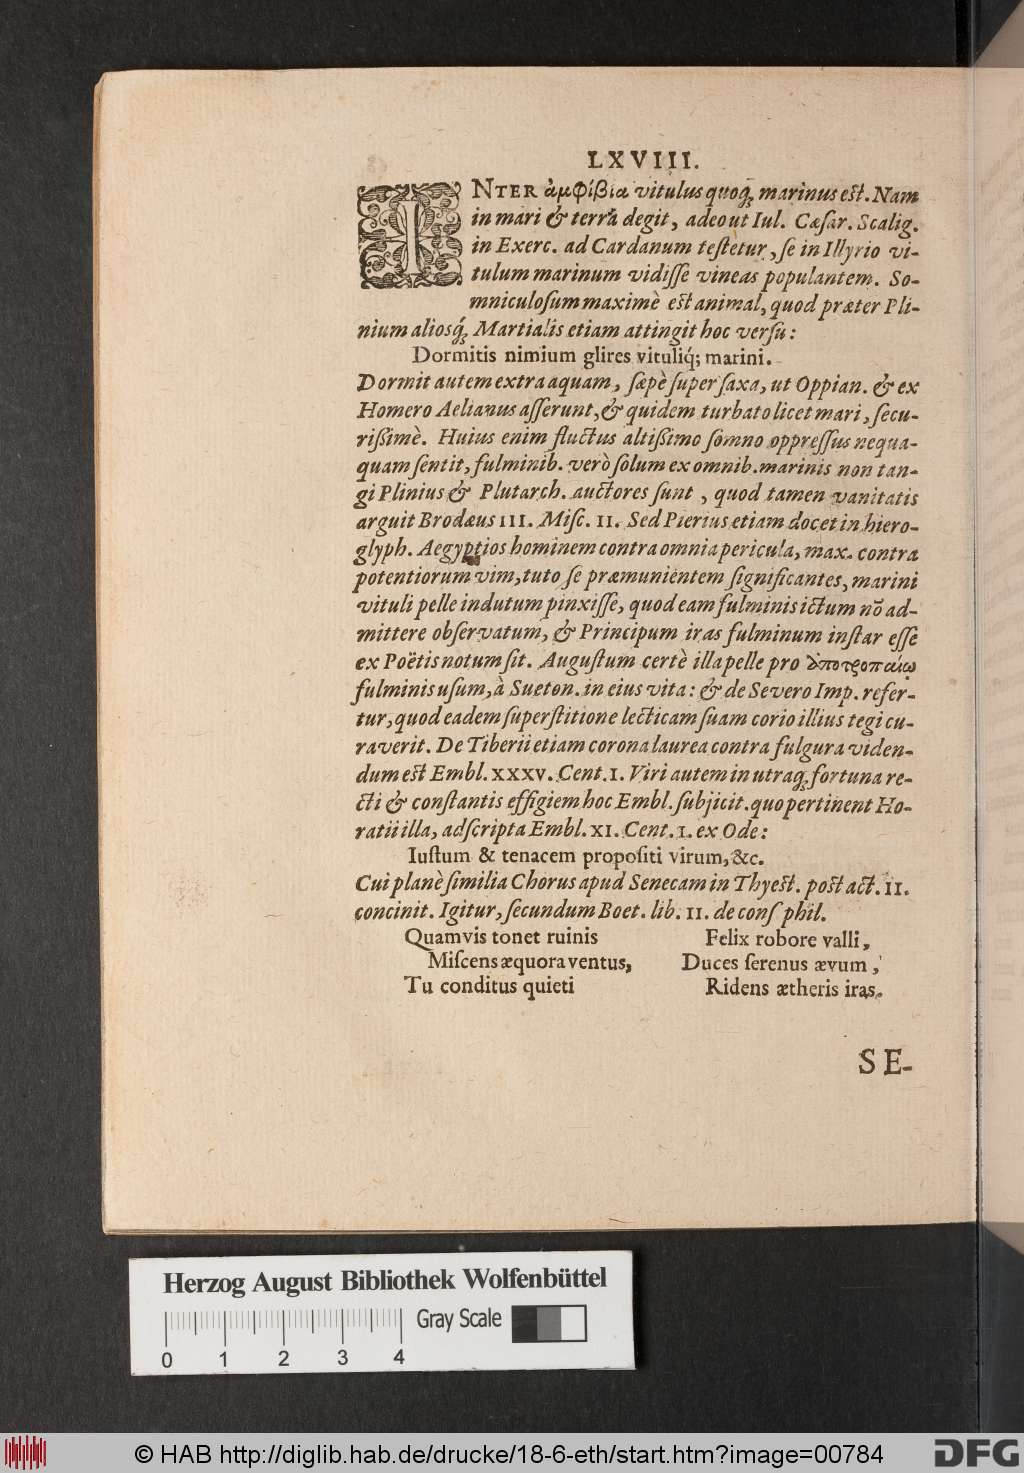 LXVIII.
INTER ἀμφίβια vitulus quoq́; marinus est. Nam
in mari & terra degit, adeo ut Iul. Cæsar. Scalig.
in Exerc. ad Cardanum teſtetur, ſe in Illyrio vi-
tulum marinum vidiſſe vineas populantem. So-
mniculoſum maximè est animal, quod præter Pli-
nium aliosq́; Martialis etiam attingit hoc verſu:
Dormitis nimium glires vituliq́; marini.
Dormit autem extra aquam, ſæpè ſuper ſaxa, ut Oppian. & ex
Homero Aelianus aſſerunt, & quidem turbato licet mari, ſecu-
rißimè. Huius enim fluctus altißimo ſomno oppreſſus nequa-
quam ſentit, fulminib. verò ſolum ex omnib. marinis non tan-
gi Plinius & Plutarch. auctores ſunt, quod tamen vanitatis
arguit Brodæus III. Miſc. II. Sed Pierius etiam docet in hiero-
glyph. Aegyptios hominem contra omnia pericula, max. contra
potentiorum vim, tuto ſe præmunientem ſignificantes, marini
vituli pelle indutum pinxiſſe, quod eam fulminis ictum nō ad-
mittere obſervatum, & Principum iras fulminum inſtar eſſe
ex Poëtis notum ſit. Auguſtum certè illa pelle pro ἀποτροπαίῳ
fulminis uſum, à Sueton. in eius vita: & de Severo Imp. refer-
tur, quod eadem ſuperſtitione lecticam ſuam corio illius tegi cu-
raverit. De Tiberii etiam corona laurea contra fulgura viden-
dum est Embl. XXXV. Cent. I. Viri autem in utraq́; fortuna re-
cti & conſtantis effigiem hoc Embl. ſubjicit. quo pertinent Ho-
ratii illa, adſcripta Embl. XI. Cent. I. ex Ode:
Iuſtum & tenacem propoſiti virum, &c.
Cui planè ſimilia Chorus apud Senecam in Thyest. post act. II.
concinit. Igitur, ſecundum Boet. lib. II. de conſ phil.
Quamvis tonet ruinis
Miſcens æquora ventus,
Tu conditus quieti
Felix robore valli,
Duces ſerenus ævum,
Ridens ætheris iras.
SE-
Herzog August Bibliothek Wolfenbüttel
Gray Scale
0 1 2 3 4
© HAB http://diglib.hab.de/drucke/18-6-eth/start.htm?image=00784
DFG